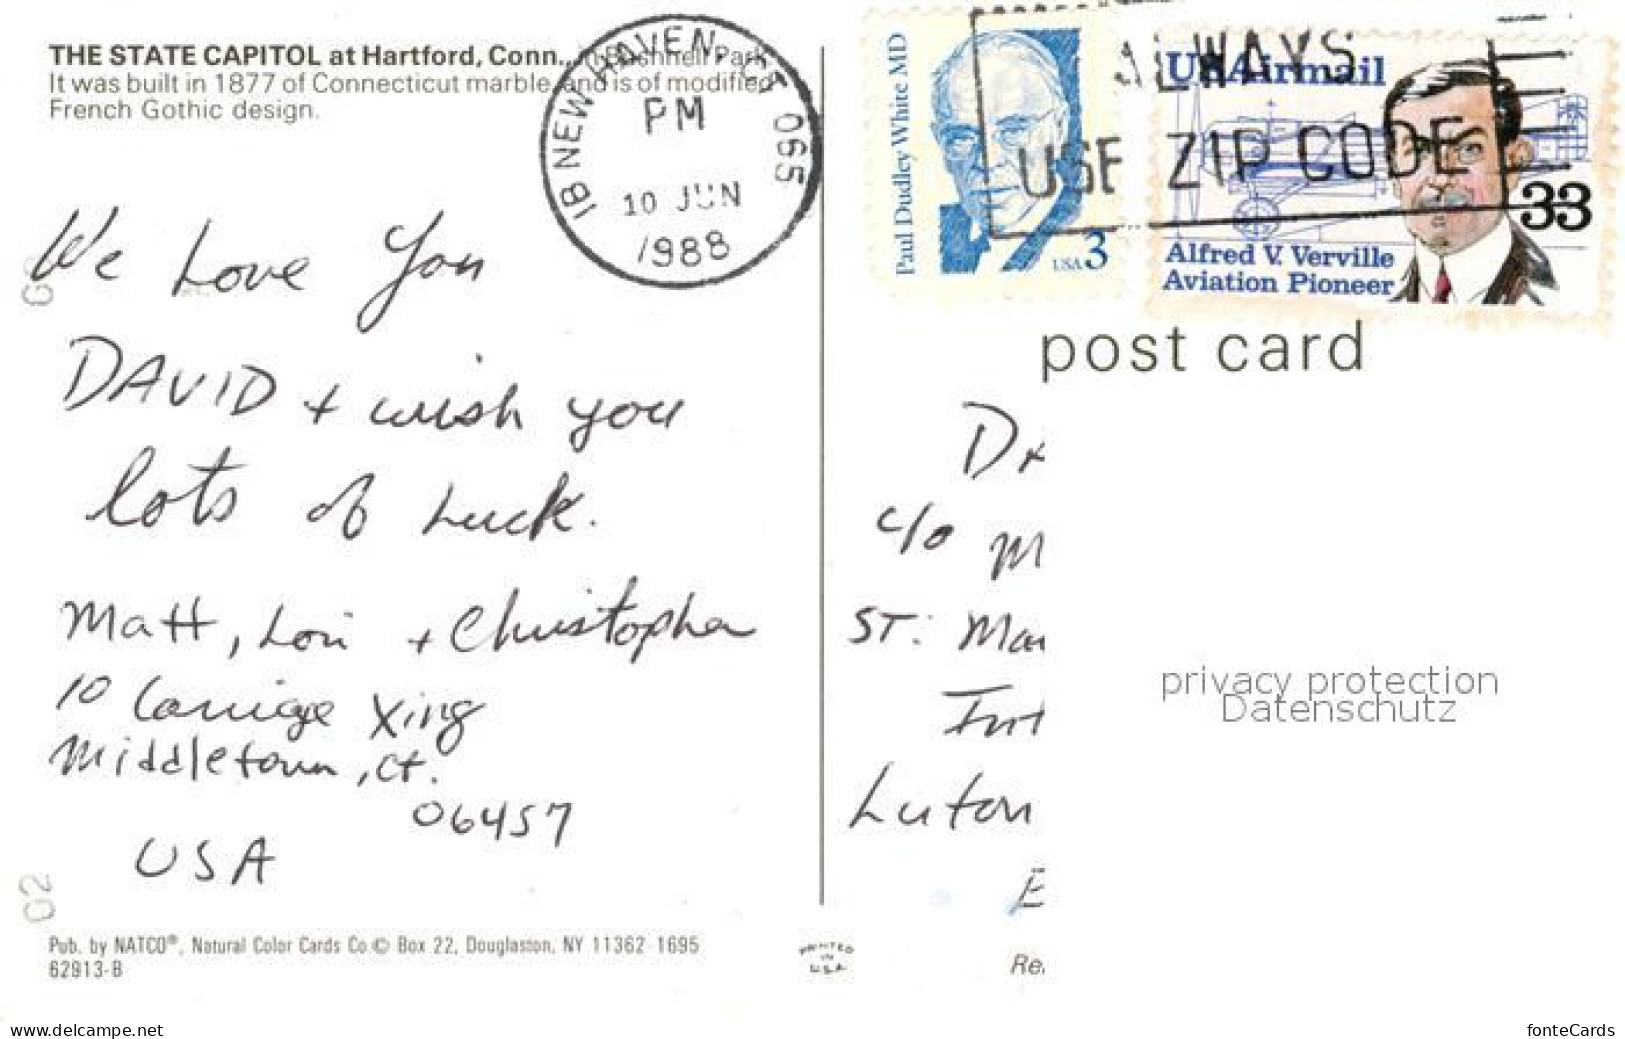 THE STATE CAPITOL at Hartford, Conn., in Bushnell Park.
It was built in 1877 of Connecticut marble, and is of modified
French Gothic design.
IB NEW HAVEN, CT 065
PM
10 JUN
1988
Paul Dudley White MD
USA 3
ALWAYS
USE ZIP CODE
USAirmail
33
Alfred V. Verville
Aviation Pioneer
post card
We Love You
DAVID + wish you
lots of Luck.
Matt, Lori + Christopher
10 Carriage Xing
Middletown, Ct.
06457
USA
02
C/O M
ST. Mar
Luton
E
privacy protection
Datenschutz
Pub. by NATCO®, Natural Color Cards Co.© Box 22, Douglaston, NY 11362-1695
62913-B
PRINTED
IN
U.S.A.
Re
www.delcampe.net
fonteCards